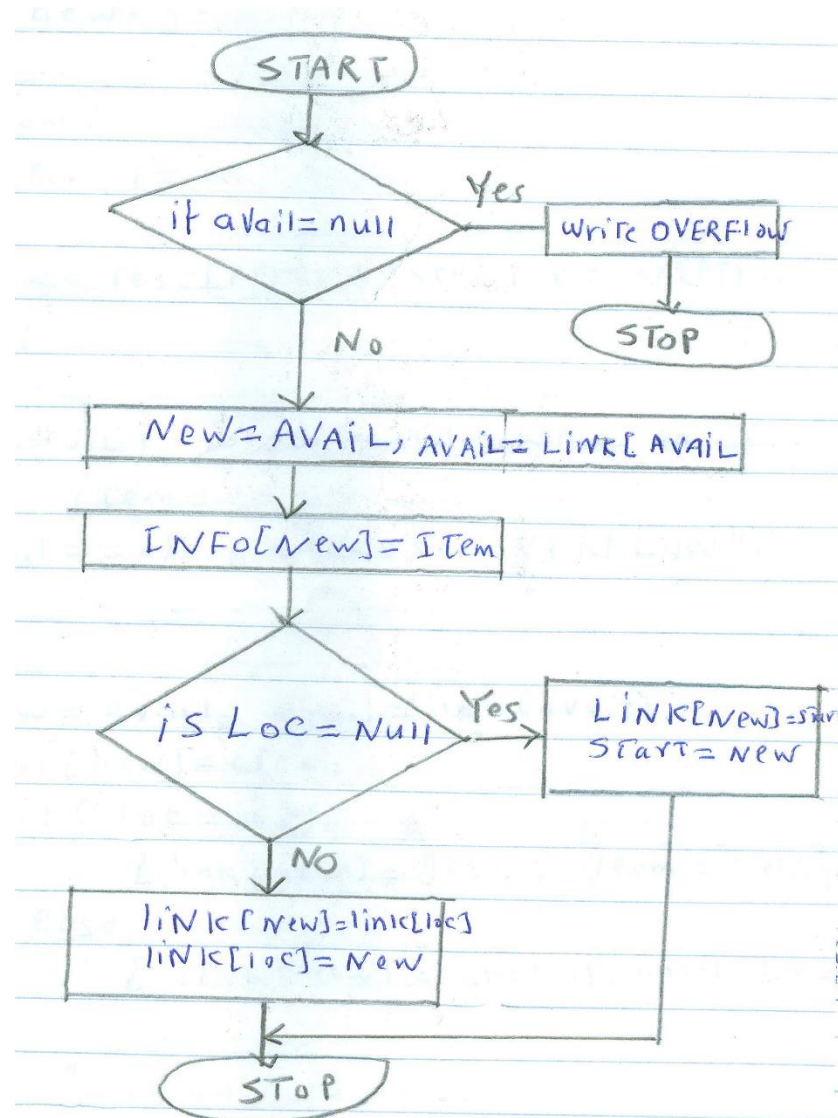 START
if avail=null
Yes
Write OVERFlow
STOP
No
New=AVAiL, AVAiL=LiNK[ AVAiL
INFO[New]=ITem
is Loc=Null
Yes
LiNK[New]=Star
STarT=New
NO
liNK[New]=link[loc]
liNK[loc]=New
STOP